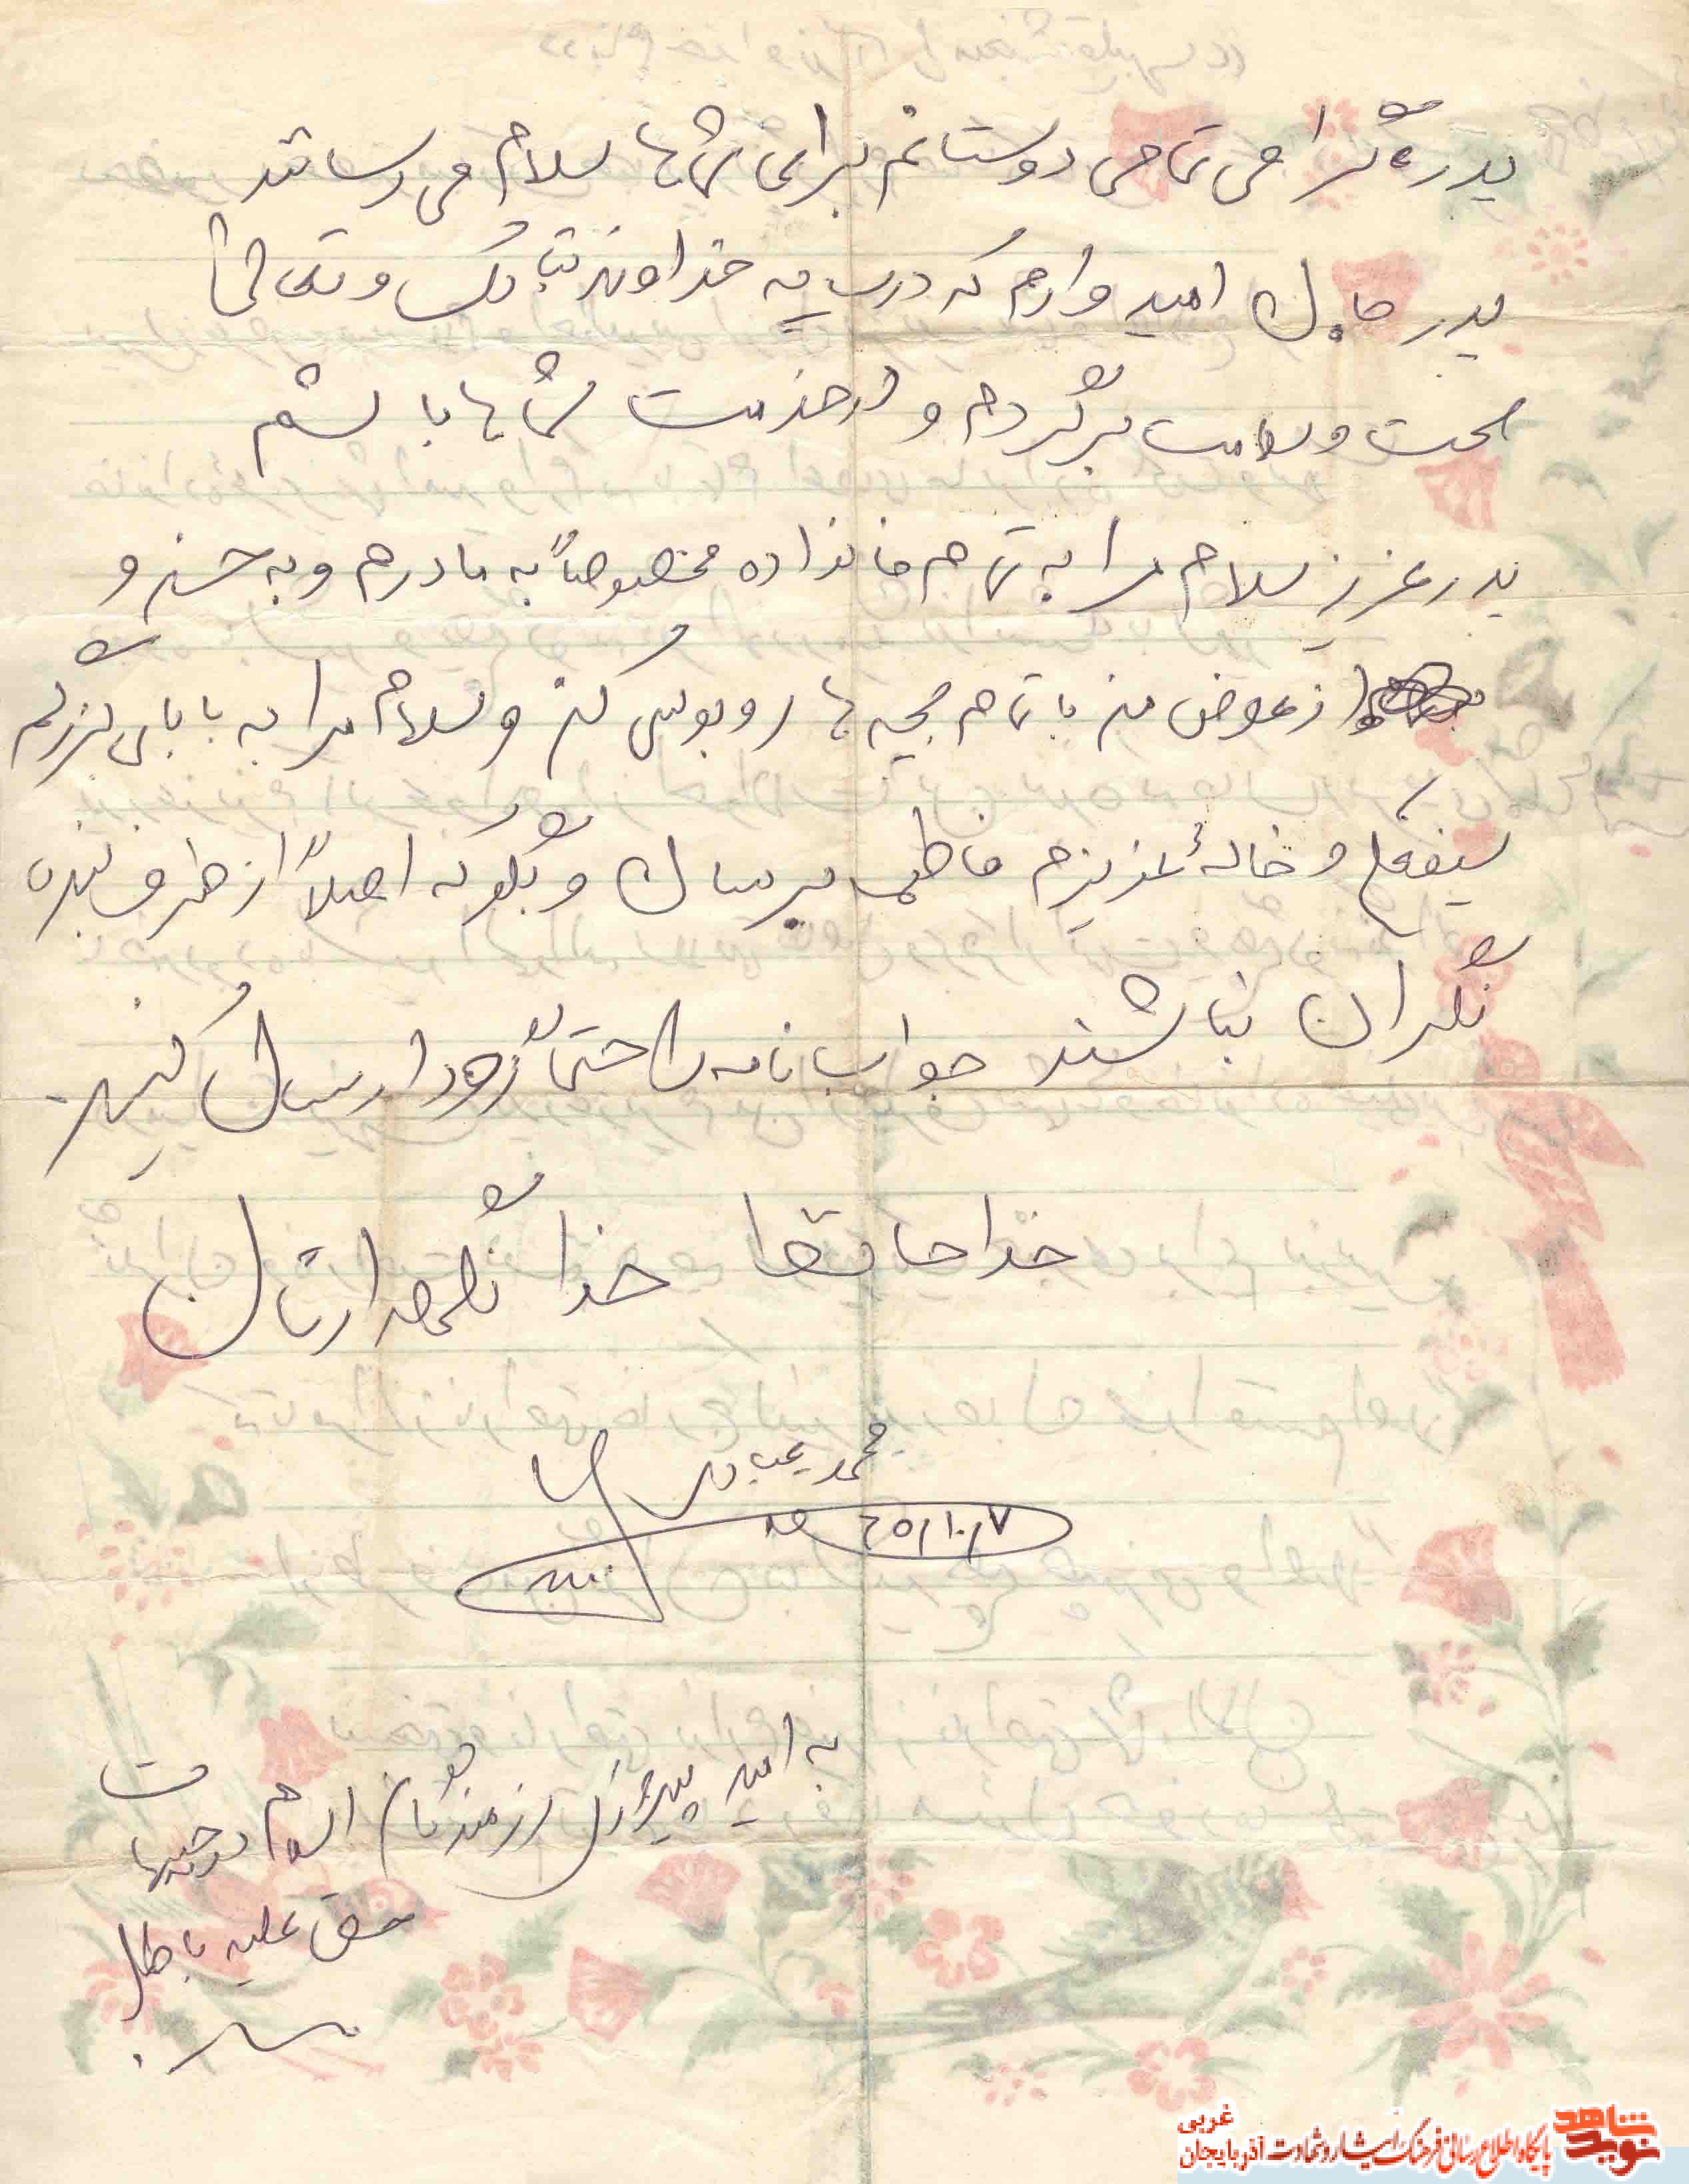 پدر گرامی تمامی دوستانم برای شماها سلام می رسانند
پدر جان امیدوارم که در سایه خداوند تبارک و تعالی با
صحت و سلامت برگردم و در خدمت شماها باشم
پدر عزیز سلام مرا به تمام خانواده مخصوصاً به مادرم و به حسن و
از عوض من با تمام بچیه ها روبوسی کن و سلام مرا به بابای بزرگم
و خالهٔ عزیزم فاطمه برسان و بگو که اصلاً از طرف بنده
نگران نباشند جواب نامه را حتماً زود ارسال کنید.
خدا حافظ خدا نگهدارتان
محمد
۶۵/۱۰/۷
به امید پیروزی رزمندگان اسلام در جبهه‌های
حق علیه باطل
نوید شاهد
پایگاه اطلاع رسانی فرهنگ ایثار و شهادت آذربایجان
غربی